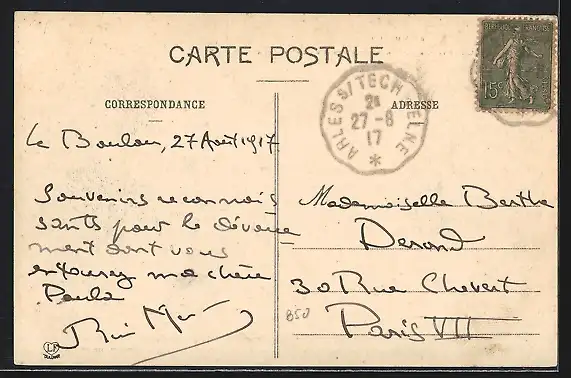 CARTE POSTALE
CORRESPONDANCE
ADRESSE
ARLES S/ TECH ELNE
2e
27-8
17
RÉPUBLIQUE FRANÇAISE
15c
Le Boulou, 27 Août 1917
Souvenirs reconnais
sants pour le dévoue
ment dont vous
entourez ma chère
Paula
Mademoiselle Berthe
Derond
30 Rue Chevert
Paris VII
850